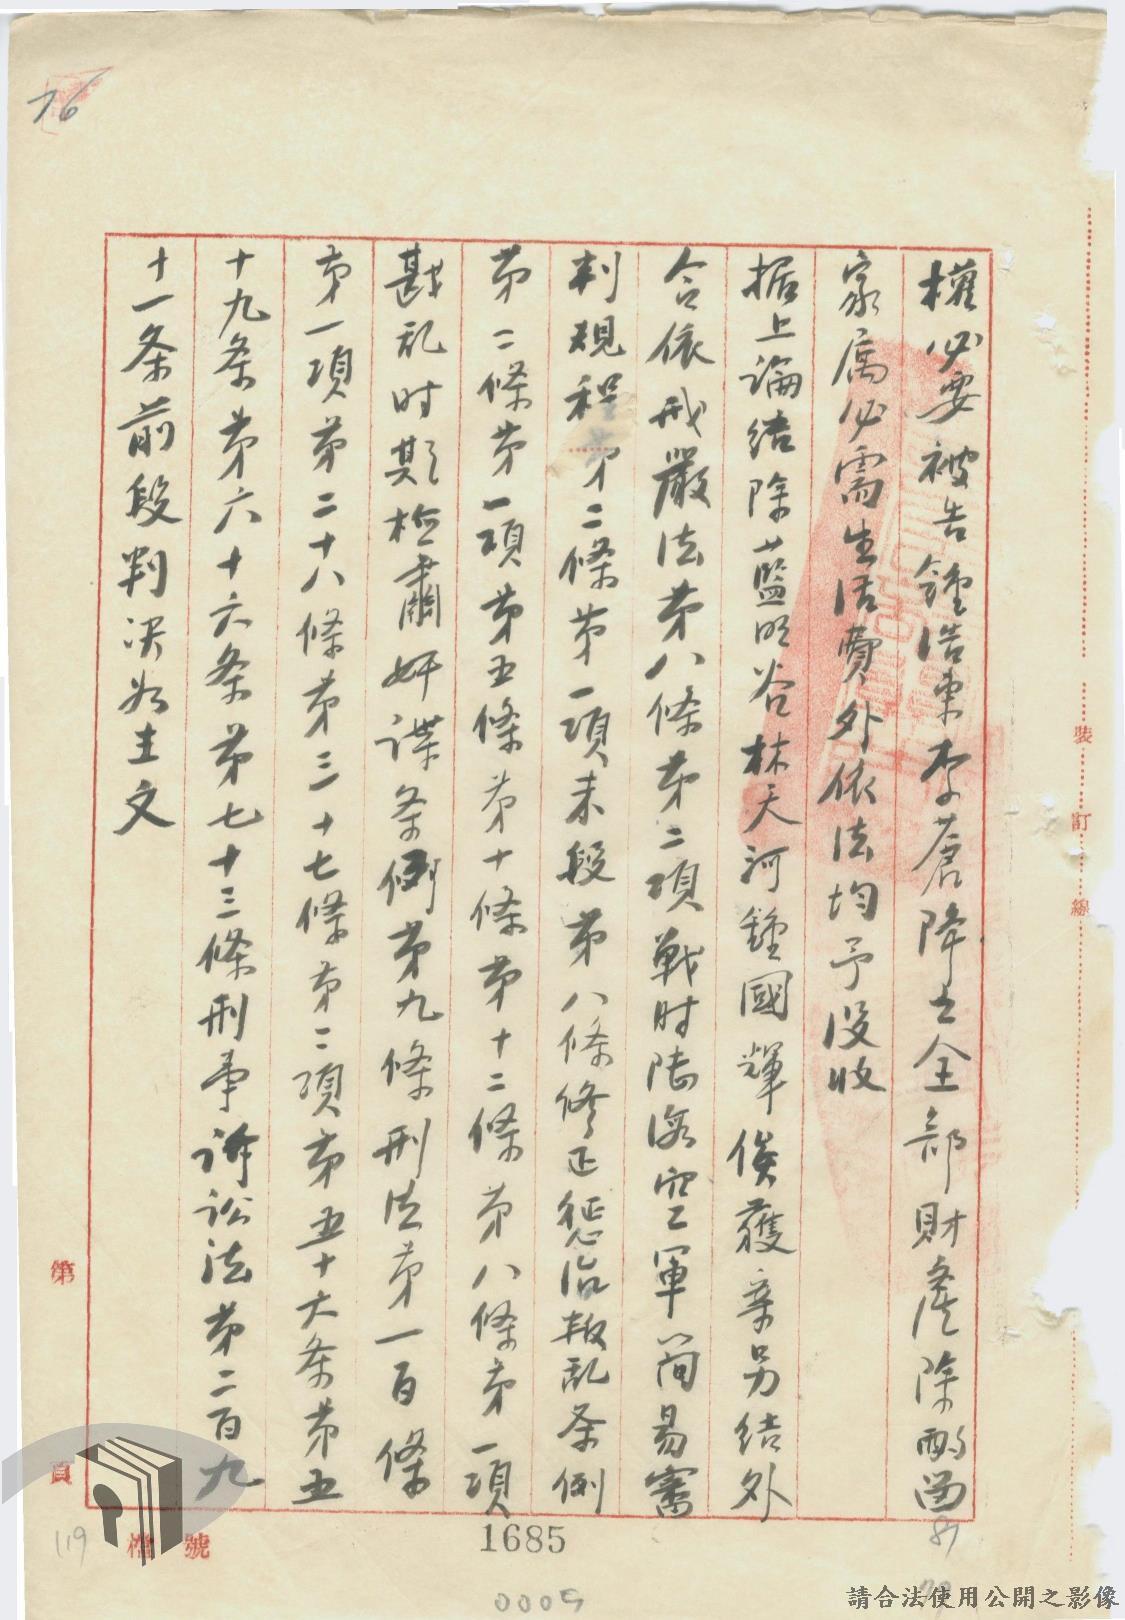 76
權必要被告鍾浩東李蒼降之全部財產除酌留
家属必需生活費外依法均予没收
据上論結除藍明谷林天河鍾國輝俟獲案另结外
合依戒嚴法第八條第二項戰时陆海空軍简易審
判規程第二條第一項末段第八條修正惩治叛乱条例
第二條第一項第五條第十條第十二條第八條第一項
戡乱时期检肅奸諜条例第九條刑法第一百條
第一項第二十八條第三十七條第二項第五十六条第五
十九条第六十六条第七十三條刑事訴訟法第二百九
十一条前段判决如主文
裝訂線
第 頁
檔號
119
1685
0009
請合法使用公開之影像